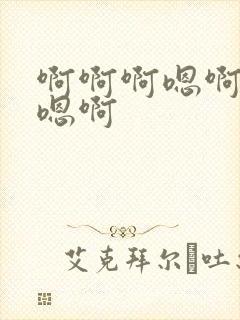 啊啊啊嗯啊
嗯啊
艾克拜尔吐